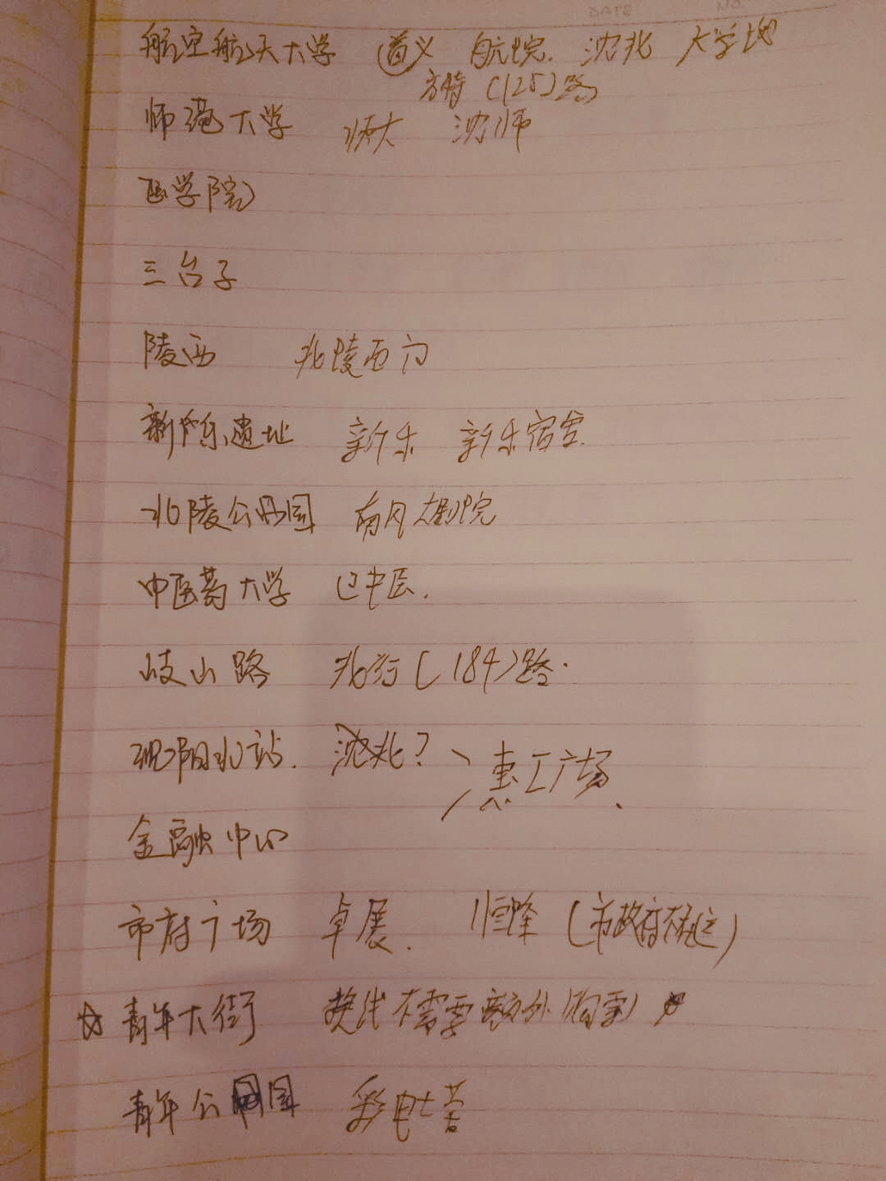 DATE NO.
航空航天大学 (道义 航院. 沈北 大学城
方特 (125)路)
师范大学 师大 沈师
医学院
三台子
陵西 北陵西门
新乐遗址 新乐 新乐宿舍.
北陵公园 南风大剧院
中医药大学 中医.
岐山路 北行(184)路.
沈阳北站. 沈北? 惠工广场
金融中心
市府广场 卓展. 恒隆 (市政府
☆青年大街 换线不需要额外
青年公园 彩电